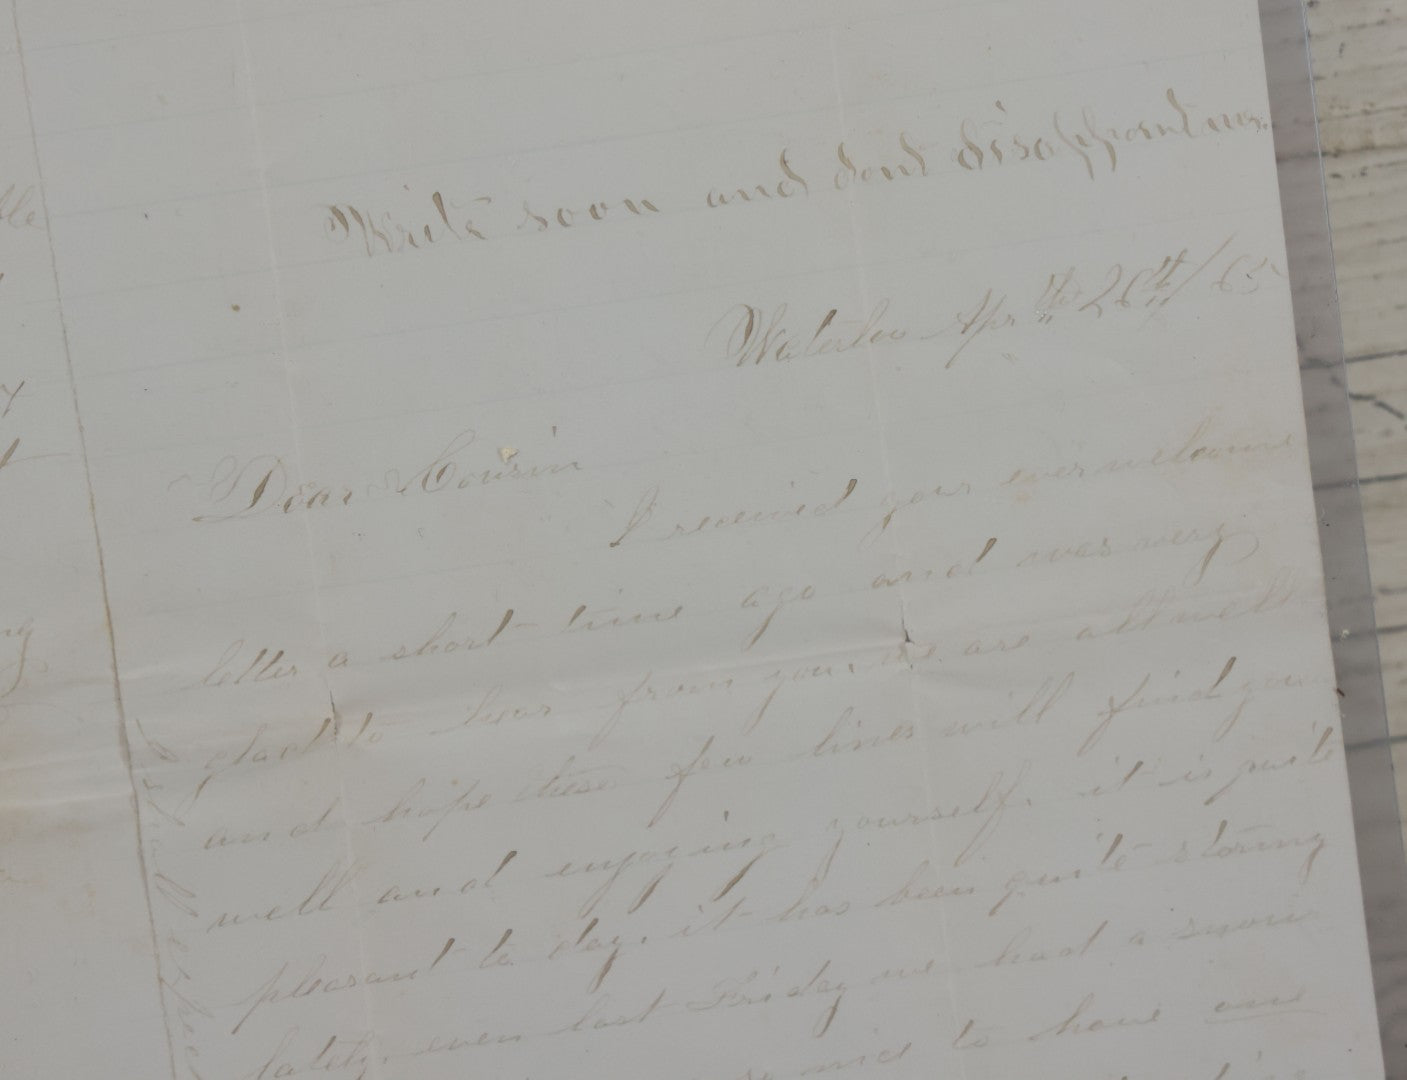 Write soon and dont disappoint me.
Waterloo Apr the 26th / 65
Dear Cousin
I received your ever welcome
letter a short time ago and was very
glad to hear from you. we are all well
and hope these few lines will find you
well and enjoying yourself. it is quite
pleasant to day. it has been quite storming
lately. even last Friday we had a snow
so nice to have one
I shall expec